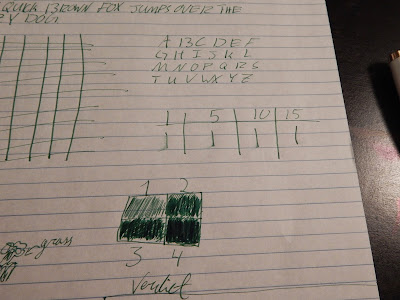 QUICK BROWN FOX JUMPS OVER THE
DOG
A B C D E F
G H I J K L
M N O P Q R S
T U V W X Y Z
1 5 10 15
1 2
grass
3 4
Verdict